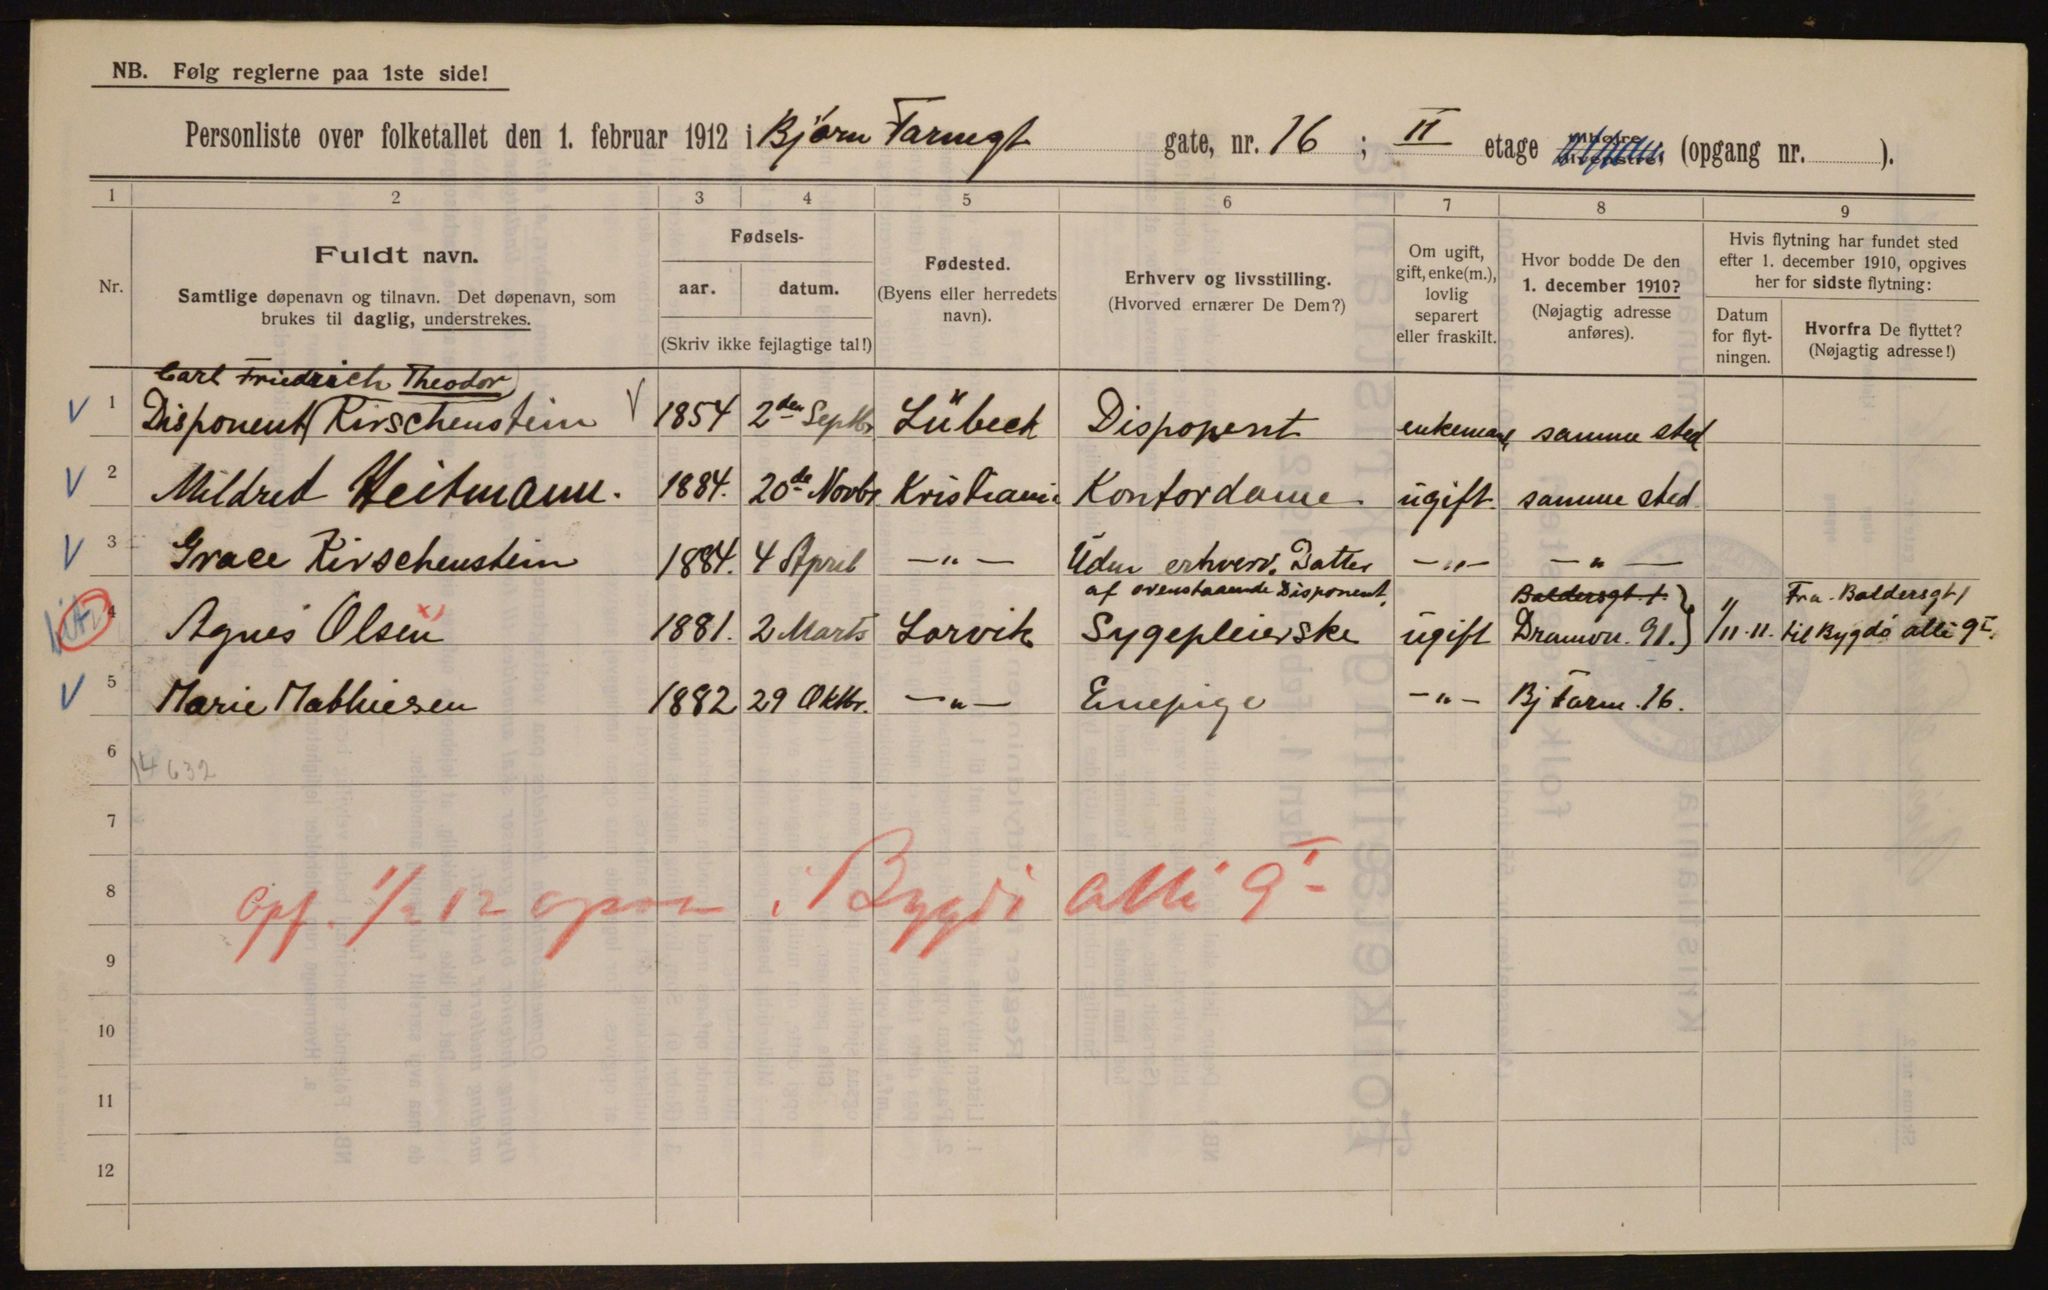 NB. Følg reglerne paa 1ste side!
Personliste over folketallet den 1. februar 1912 i Bjørn Farmgt gate, nr. 16 ; II etage (opgang nr. ).
1 2 3 4 5 6 7 8 9
Nr.
Fuldt navn.
Samtlige døpenavn og tilnavn. Det døpenavn, som
brukes til daglig, understrekes.
Fødsels-
aar. datum.
(Skriv ikke fejlagtige tal!)
Fødested.
(Byens eller herredets
navn).
Erhverv og livsstilling.
(Hvorved ernærer De Dem?)
Om ugift,
gift, enke(m.),
lovlig
separert
eller fraskilt.
Hvor bodde De den
1. december 1910?
(Nøjagtig adresse
anføres).
Hvis flytning har fundet sted
efter 1. december 1910, opgives
her for sidste flytning:
Datum
for flyt-
ningen.
Hvorfra De flyttet?
(Nøjagtig adresse!)
Carl Friedrich Theodor
1 Disponent Kirschenstein 1854 2den Septbr Lübeck Disponent enkemand samme sted
2 Mildred Heitmann. 1884. 20de Novbr Kristiania Kontordame ugift samme sted
3 Grace Kirschenstein 1884. 4 April —"— Uden erhverv. Datter —"— —"—
af ovenstaaende Disponent. Baldersgt. 1 Fra Baldersgt 1
4 Agnes Olsen x) 1881. 2 Marts Larvik Sygepleierske ugift Dramvn. 91. 1/11-11. til Bygdø allé 9 I.
5 Marie Mathiesen 1882 29 Oktbr. —"— Enepige —"— Bj Farm. 16.
6
14632
7
8 Opf. 1/2 12 i Bygdø allé 9 I
9
10
11
12